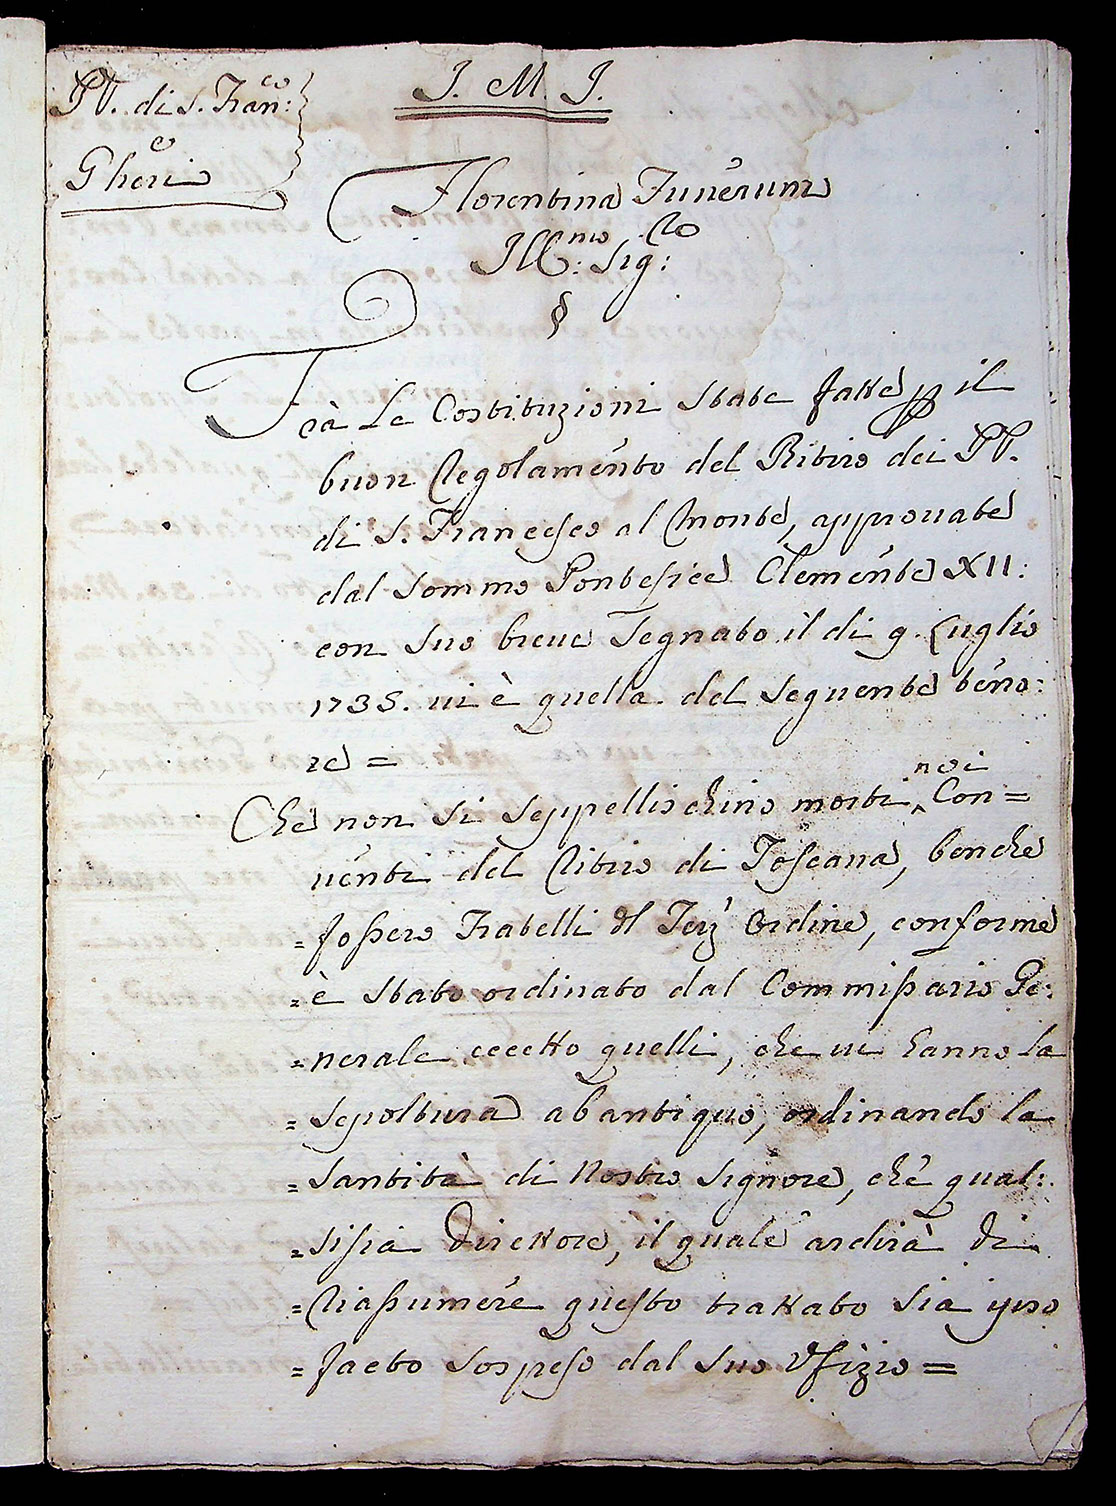 PP. di S. Fran:co
e
Gheri
J. M. J.
Florentina Funerum
Ill:mo Sig:re
§
Frà Le Costituzioni state fatte p il
buon Regolamento del Ritiro dei PP.
di S. Francesco al Monte, approvate
dal Sommo Pontefice Clemente XII:
con suo breve Segnato il di 9. Luglio
1735. vi è quella del seguente teno:
re =
Che non si seppellischino morti nei Con=
venti del Ritiro di Toscana, benche
= fossero Fratelli dl Terz' Ordine, conforme
= è stato ordinato dal Commissario Ge:
= nerale eccetto quelli, che vi hanno la
= sepoltura ab antiquo, ordinando la
= Santità di Nostro Signore, che qual:
= sisia Direttore, il quale ardirà di
= Riassumere questo trattato sia ipso
= facto sospeso dal suo Ufizio =